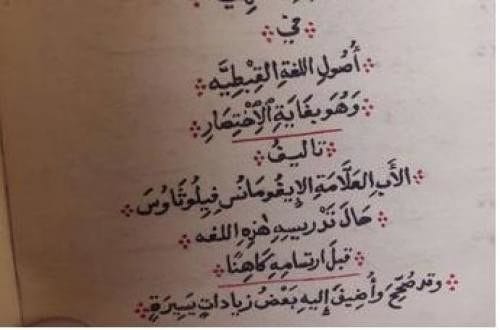 في
أُصُولِ اللغةِ القِبْطِيَّه
وَهُوَ بِغَايَةِ الِاخْتِصَارِ
تاليفُ
الأَبِ العَلَّامَةِ الإِيغُومَانُسِ فِيلُوثَاوُسَ
حَالَ تَدْرِيسِهِ هٰذِهِ اللغه
قبلَ ارتسامهِ كاهنًا
وقد صُحِّحَ وأُضِيفَ إليهِ بَعْضُ زياداتٍ يَسِيرَةٍ